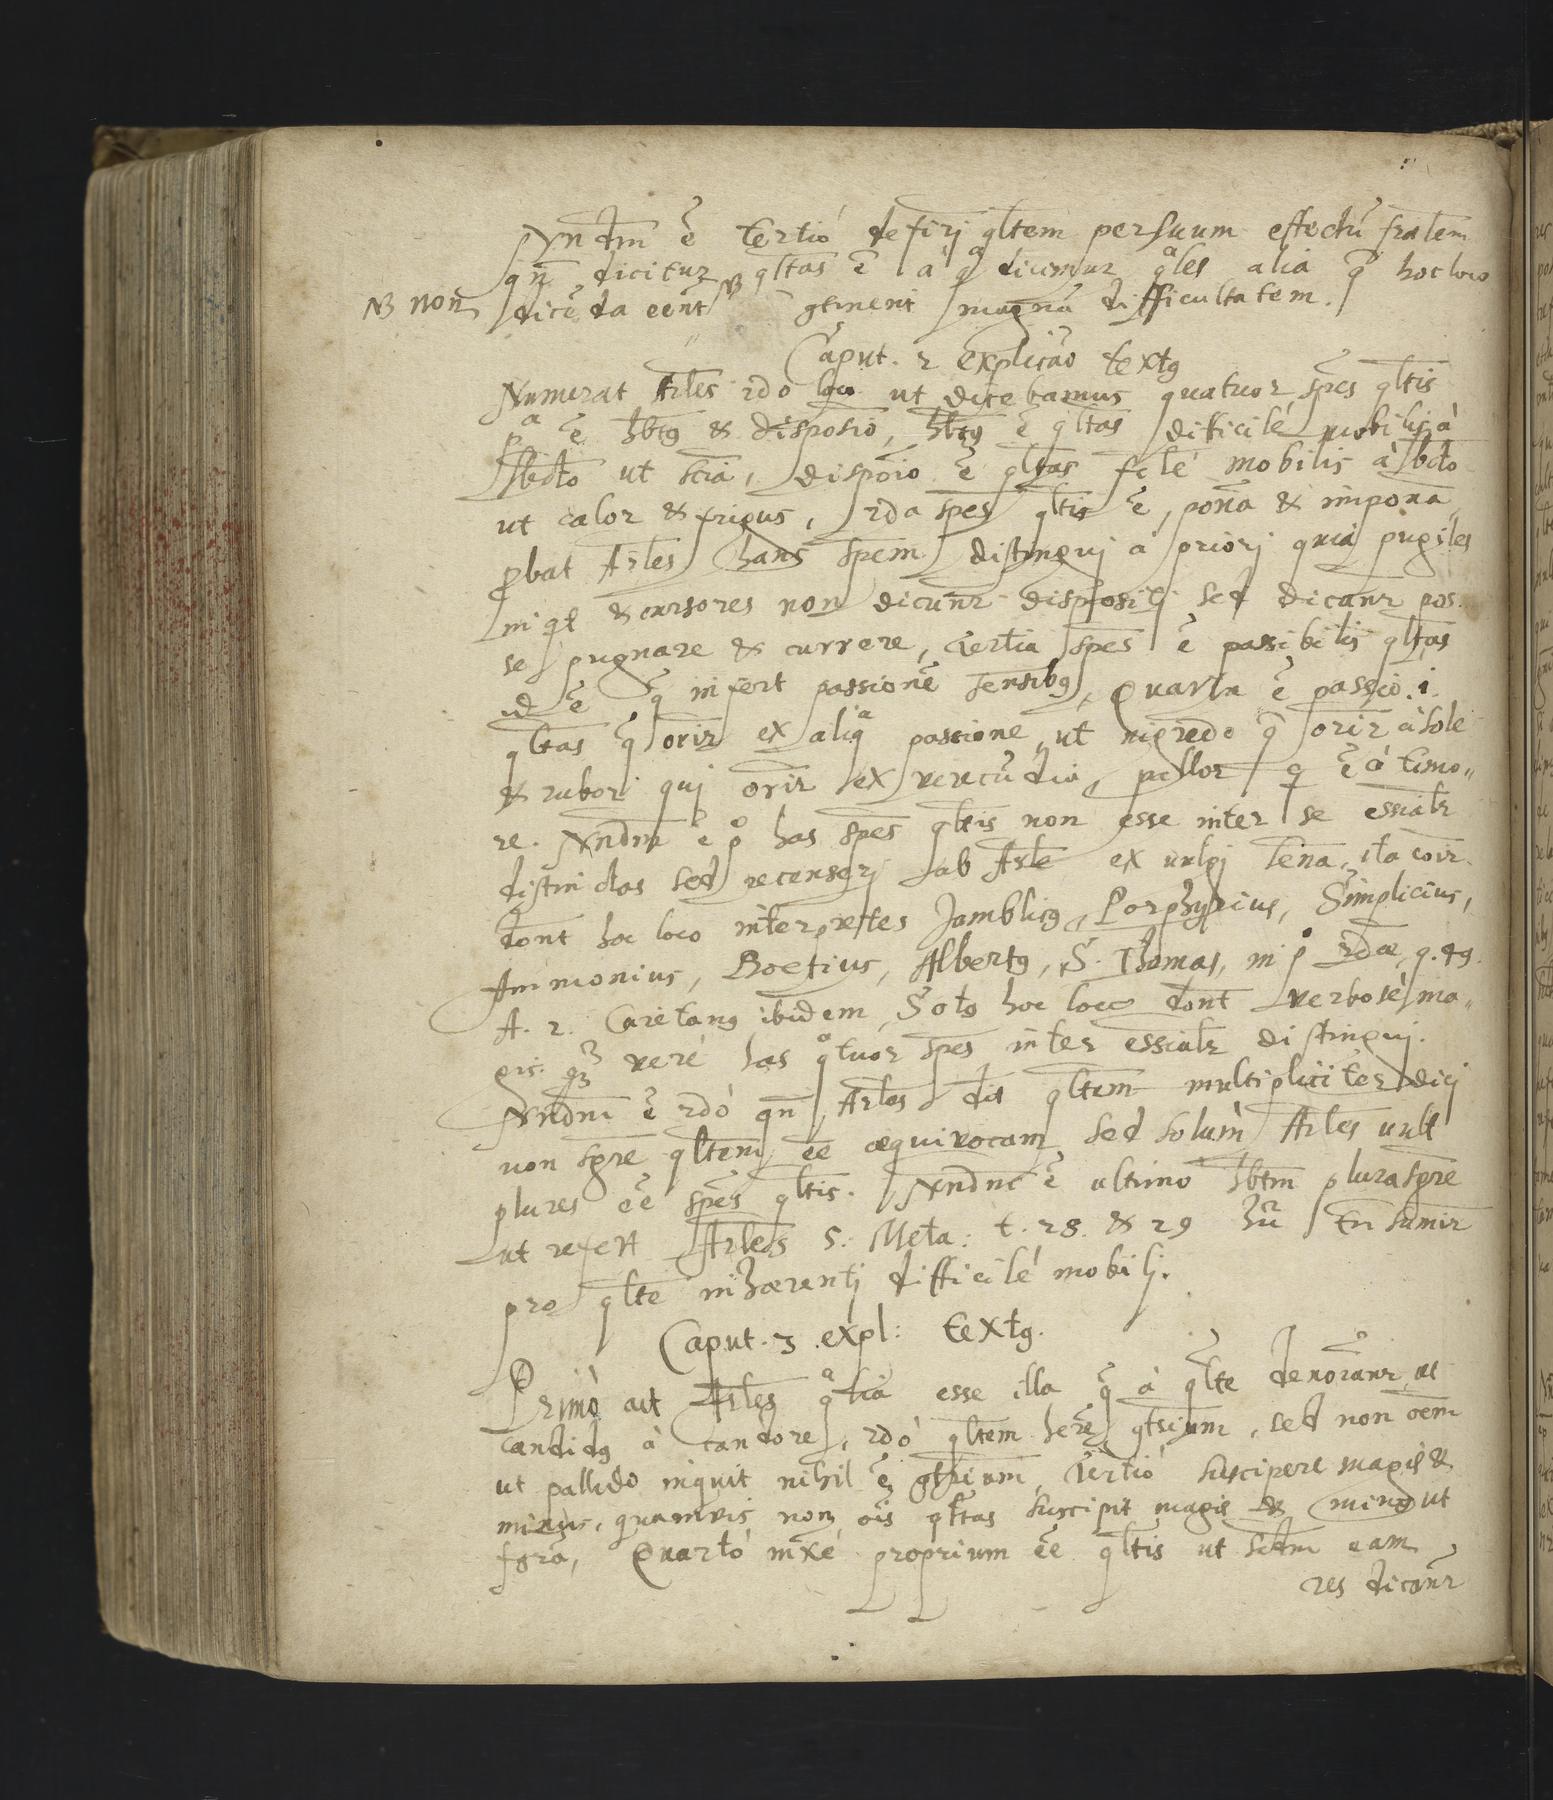 Nndm̄ ē tertiò definirj qltem per suum effectū fralem
qn̄ dicitur qltas ē à qª dicuntur qªles alia q̄ hoc loco
NB non dicēda eent NB gtinent magnā difficultatem.
Caput. 2 explicāo textg
Numerat Arles 2do loco ut dicebamus quatuor spēs qltis
pª ē hbtg & disposio, hbtg ē qltas difficilè mobilis à
sbdto ut scia, dispoio ē qltas fclè mobilis à sbdto
ut calor & frigus, 2da spēs qltis ē, pona & impona
pbat Arles hanc spem distinguj à priorj quia pugiles
inqt & cursores non dicunr dispositj sed dicanr pos
se pugnare & currere, Tertia spēs ē passibilis qltas
id ē q̄ infert passionē sensibg, Quarta ē passio .i.
qltas q̄ orir ex aliqª passione, ut nigredo q̄ orir à sole
& rubor quj orir ex verecūdia, pallor q ē à timo„
re. Nndm ē pº has spēs qltis non esse inter se essialr
distinctas sed recenserj ab Arle ex vulgj sena, ita coir
dont hoc loco interpretes Jamblicg, Porphyrius, Simplicius,
Ammonius, Boetius, Albertg, S. Thomas, in pº 2dæ, q. 49.
A. 2. Caietang ibidem, Sotg hoc loco dont verbosè ma„
gis. qª verè has qªtuor spēs inter essialr distinguj.
Nndm ē 2dò qn̄ Arles dit qltem multipliciter dicj
non sgre qltem ēe æquivocam sed solùm Arles vult
plures ēe spēs qltis. Nndm ē ultimò hbtm plura sgre
ut refert Arles 5: Meta: t. 28 & 29 hū tn sumir
pro qlte inhærentj difficilè mobilj.
Caput. 3 expl: textg.
Primò ait Arles qªlia esse illa q̄ à qlte denoianr ut
candidg à candore, 2dò qltem here gtrium, sed non oem
ut pallido inquit nihil ē gtrium, Tertiò suscipere magis &
minus, quamvis non ois qltas suscipit magis & ming ut
fgra, Quartò mxè proprium ēe qltis ut scdm eam
res dicanr